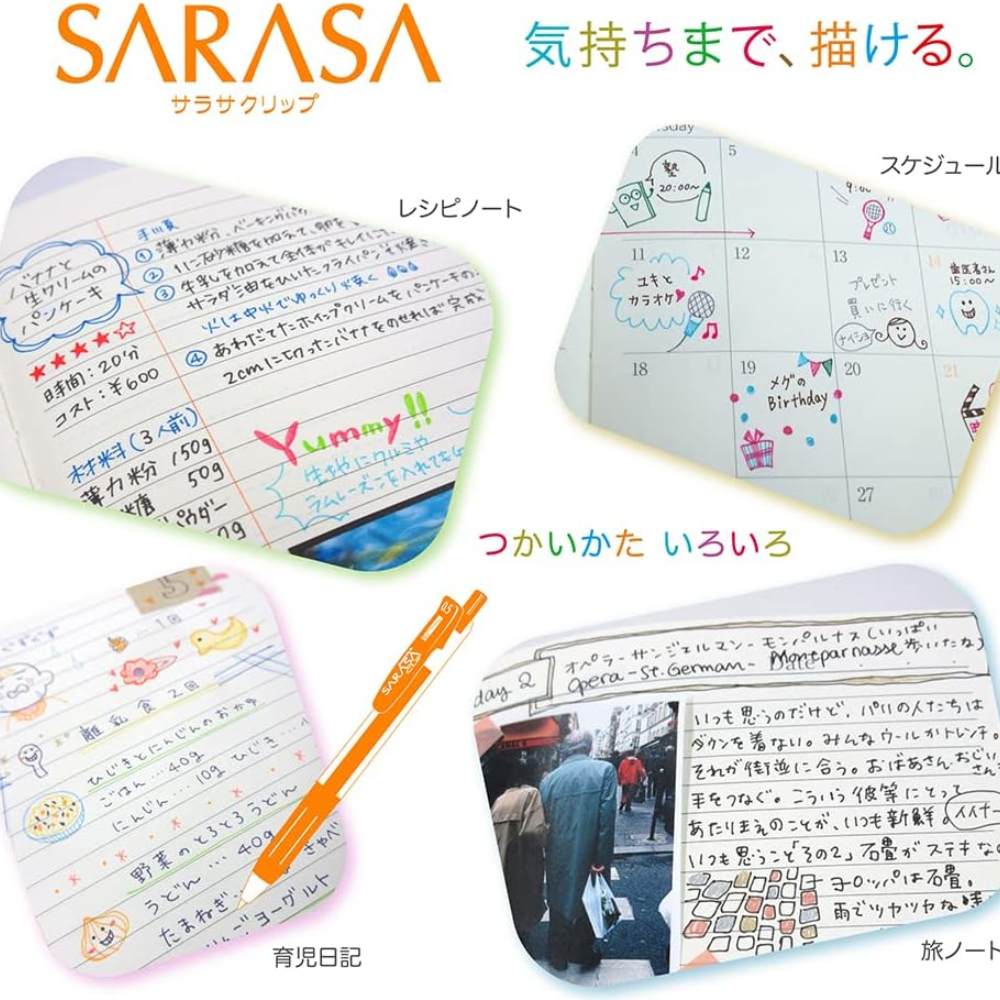 SARASA
サラサクリップ
気持ちまで、描ける。
レシピノート
バナナと
生クリームの
パンケーキ
時間:20分
コスト:¥600
材料(3人前)
薄力粉 150g
50g
パウダー
手順
① 薄力粉、ベーキングパウ
② ①に砂糖を加えて、卵を
③ 牛乳を加えて全体がキレイに
サラダ油をひいたフライパンで
火は中火でゆっくり焼く
④ あわだてたホイップクリームをパンケーキの
2cmに切ったバナナをのせれば完成
Yummy!!
生地にクルミや
ラムレーズンを入れても
スケジュール
sday
4
塾
20:00〜
5
9:00
11
ユキと
カラオケ
12
13
プレゼント
買いに行く
ナイショ
14
歯医者さん
15:00〜
18
19
メグの
Birthday
20
21
27
つかいかた いろいろ
5
1回
離乳食 2回
ひじきとにんじんのおかゆ
ごはん…40g
にんじん…10g ひじき…
野菜のとろとろうどん
うどん … 40g
たまねぎ
さやい
りんごヨーグルト
SARASA
CLIP
0.5
育児日記
day 2
オペラーサンジェルマン-モンパルナス(いっぱい
Opera-St.German-Montparnasse 歩いたな)
いつも思うのだけど、パリの人たちは
ダウンを着ない。みんなウールかトレンチ。
それが街並に合う。おばあさんおじいさん
手をつなぐ。こういう彼等にとって
あたりまえのことが、いつも新鮮。
いつも思うこと「その2」石畳がステキな
ヨーロッパは石畳。
雨でツヤツヤな
旅ノート